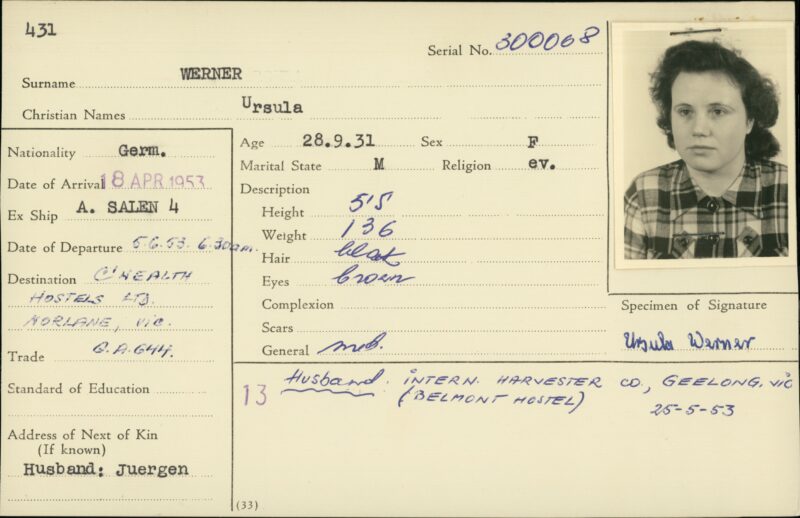 431
Serial No. 300068
Surname WERNER
Christian Names Ursula
Nationality Germ.
Date of Arrival 18 APR 1953
Ex Ship A. SALEN 4
Date of Departure 5.6.53 6.30am.
Destination C'WEALTH
HOSTELS LTD.
NORLANE, VIC.
Trade G.A.644.
Standard of Education
Address of Next of Kin
(If known)
Husband: Juergen
Age 28.9.31 Sex F
Marital State M Religion ev.
Description
Height 5'5
Weight 136
Hair black
Eyes brown
Complexion
Scars
General
Specimen of Signature
Ursula Werner
13 Husband. INTERN. HARVESTER CO., GEELONG. VIC
(BELMONT HOSTEL) 25-5-53
(33)